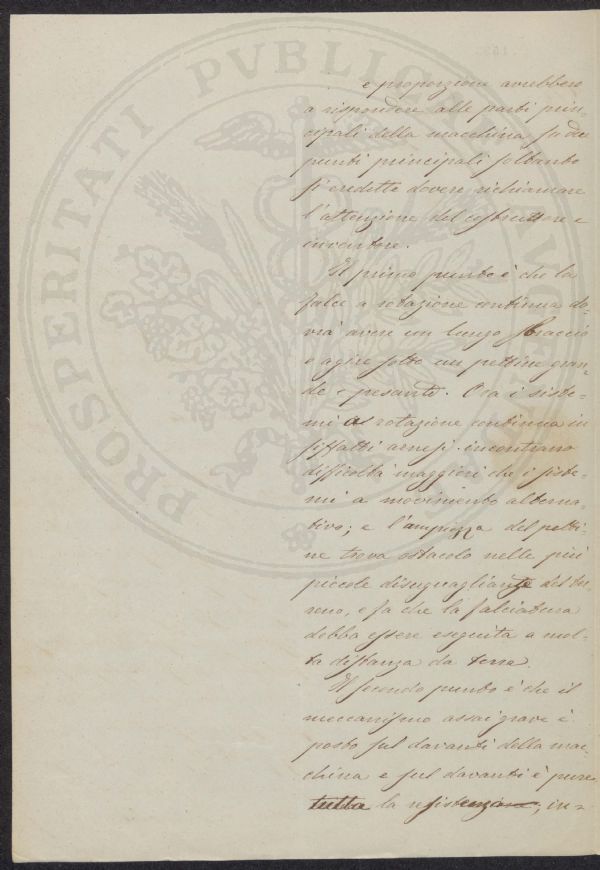 PROSPERITATI PVBLICAE AVGENDAE
e proporzione avrebbero
a rispondere alle parti prin-
cipali della macchina, su due
punti principali soltanto
si credette dovere richiamare
l'attenzione del costruttore e
inventore.
Il primo punto è che la
falce a rotazione continua do-
vrà avere un lungo braccio
e agire sotto un pettine gran-
de e pesante. Ora i siste-
mi a rotazione continua in
siffatti arnesi incontrano
difficoltà maggiori che i siste-
mi a movimento alterna-
tivo; e l'ampiezza del petti-
ne trova ostacolo nelle più
piccole disuguaglianze del ter-
reno, e fa che la falciatura
debba essere eseguita a mol-
ta distanza da terra.
Il secondo punto è che il
meccanismo assai grave è
posto sul davanti della mac-
china e sul davanti è pure
tutta la resistenza, in-